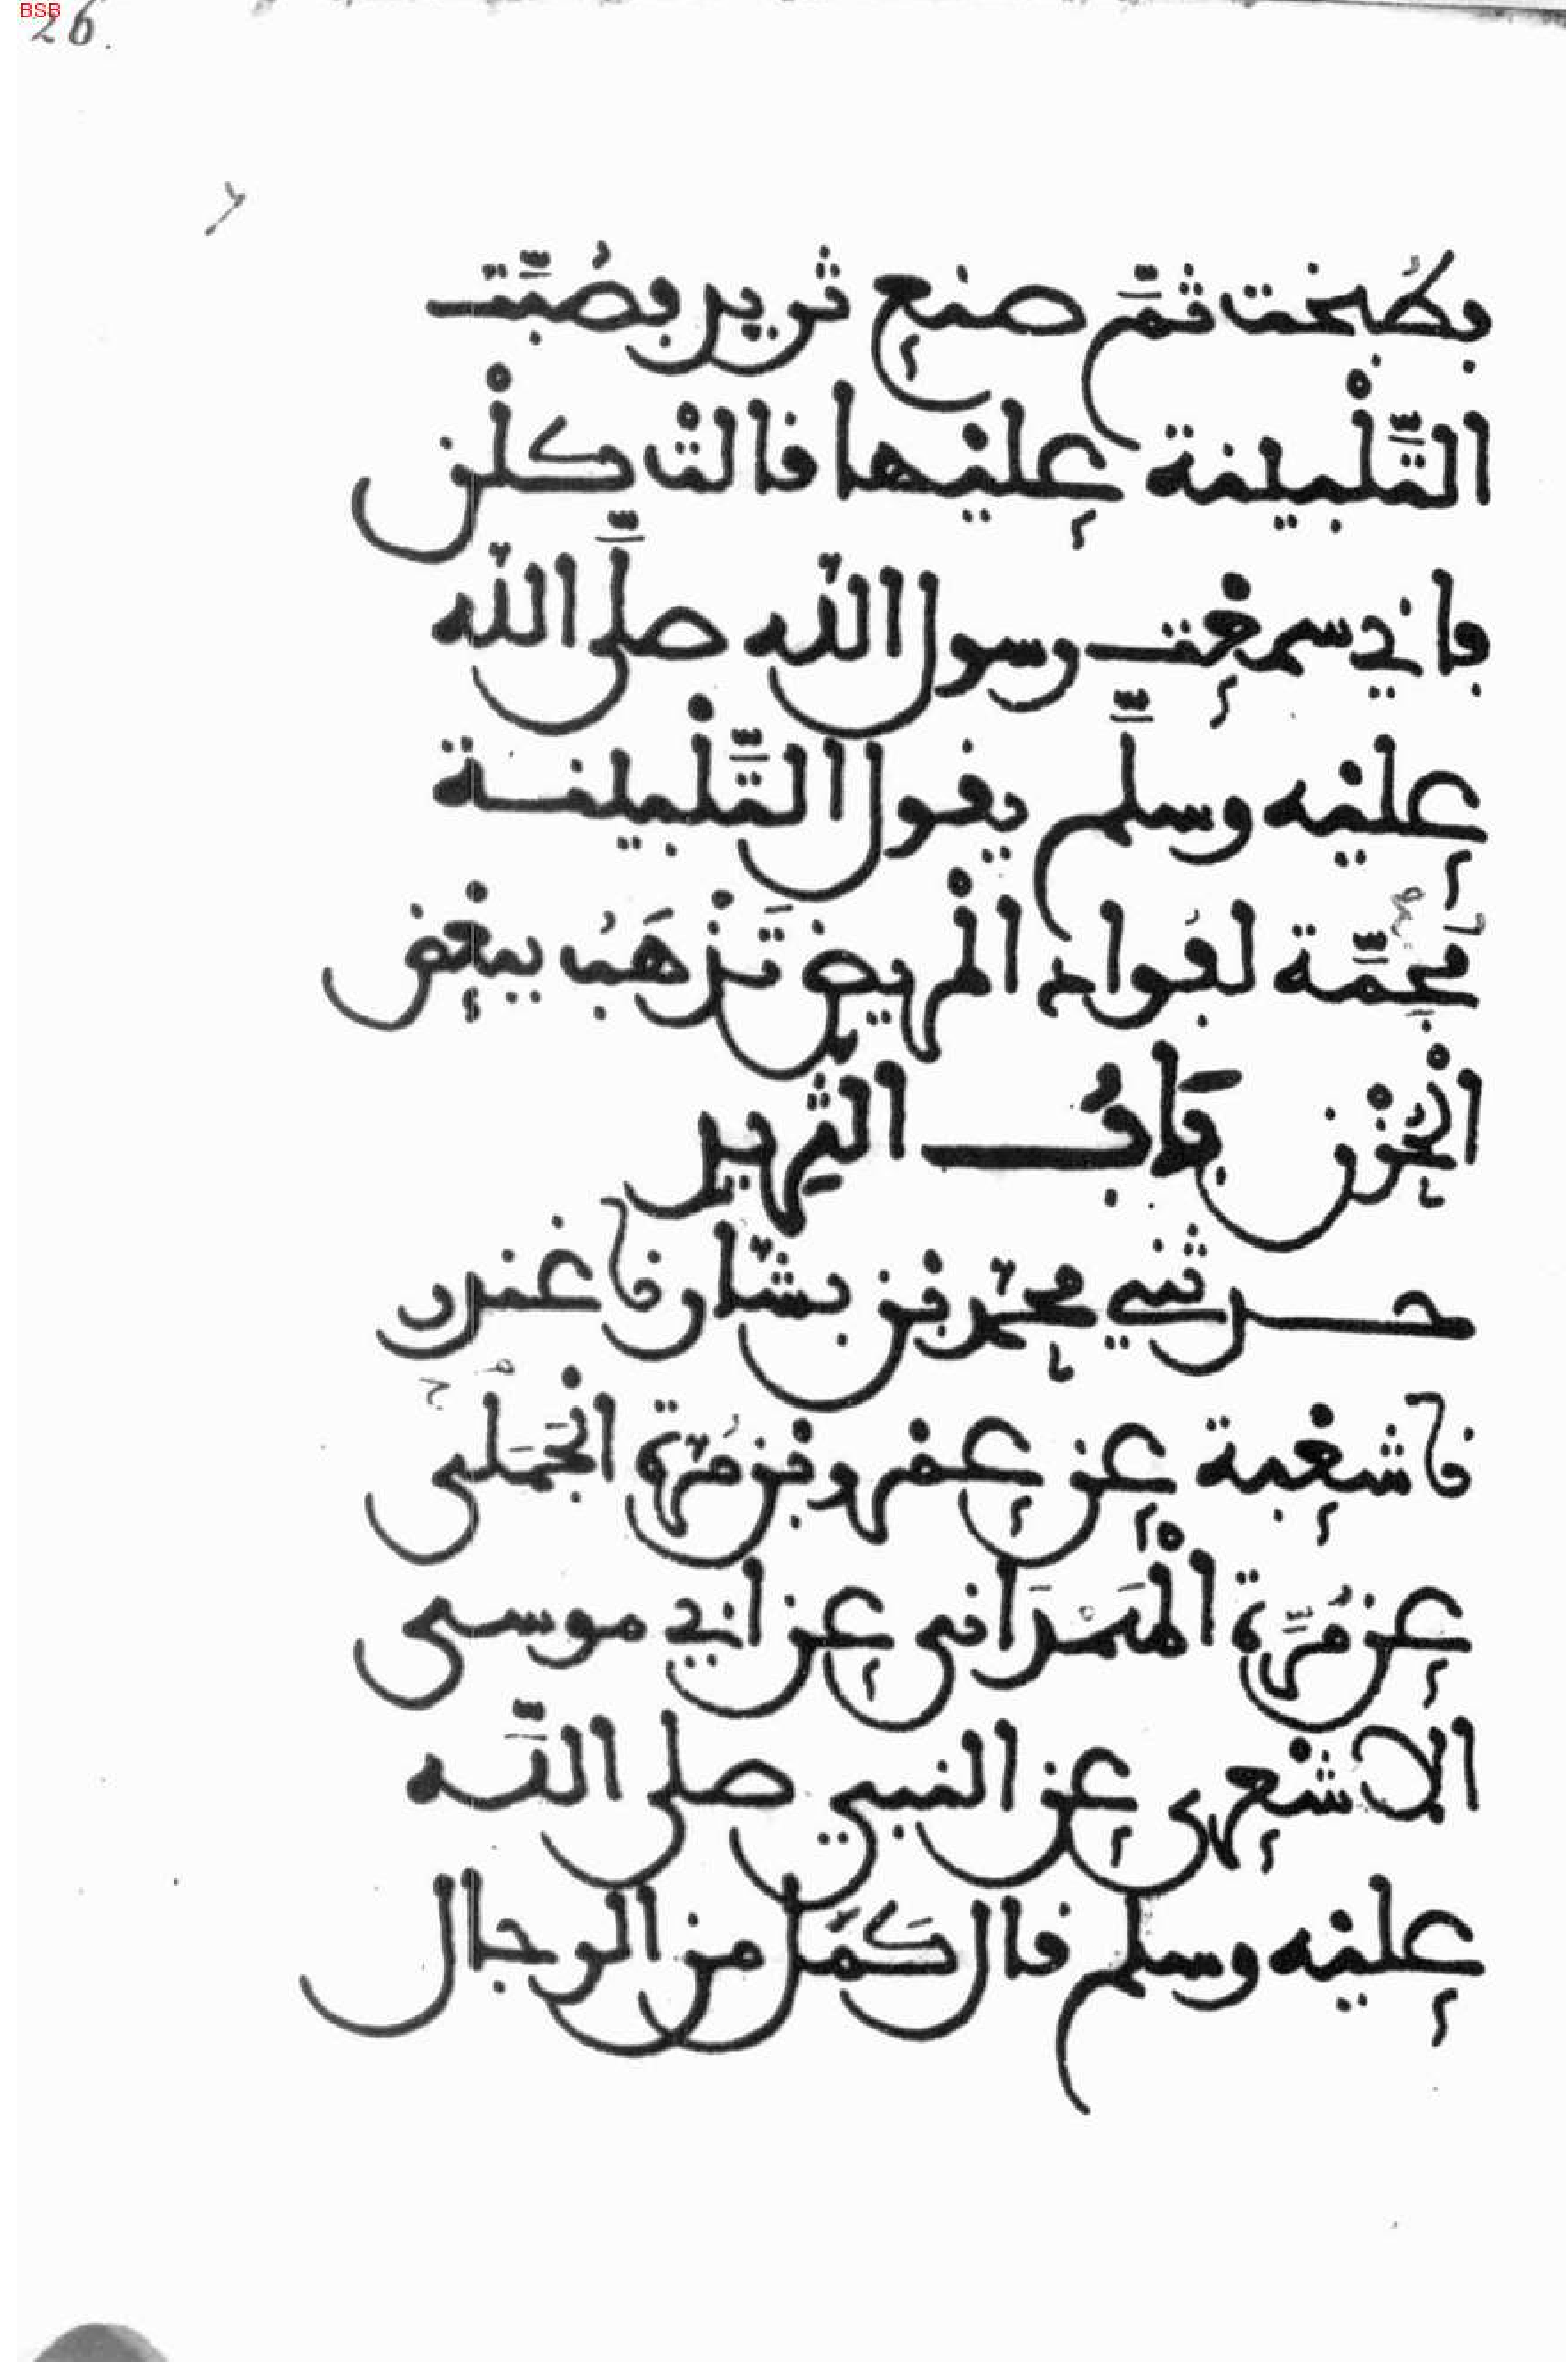 BSB
26.
فطُبخت ثمَّ صنع ثريد فصُبَّت
التَّلْبينة عليها قالتْ كلْن
فاني سمعْت رسول الله صلَّى الله
عليْه وسلَّم يقول التَّلْبينة
مُجِمَّة لفُواد الْمريض تَذْهَبُ ببعْض
الْحزْن بَابُ الثريد
حدثني محمّد بن بشّار نا غندر
نا شعْبة عن عمْرو بْن مُرّة الْجَمَلي
عن مُرَّة الْهَمْدَاني عن ابي موسى
الاشْعري عن النبي صلى اللَّه
عليْه وسلم قال كَمَُل من الرجال